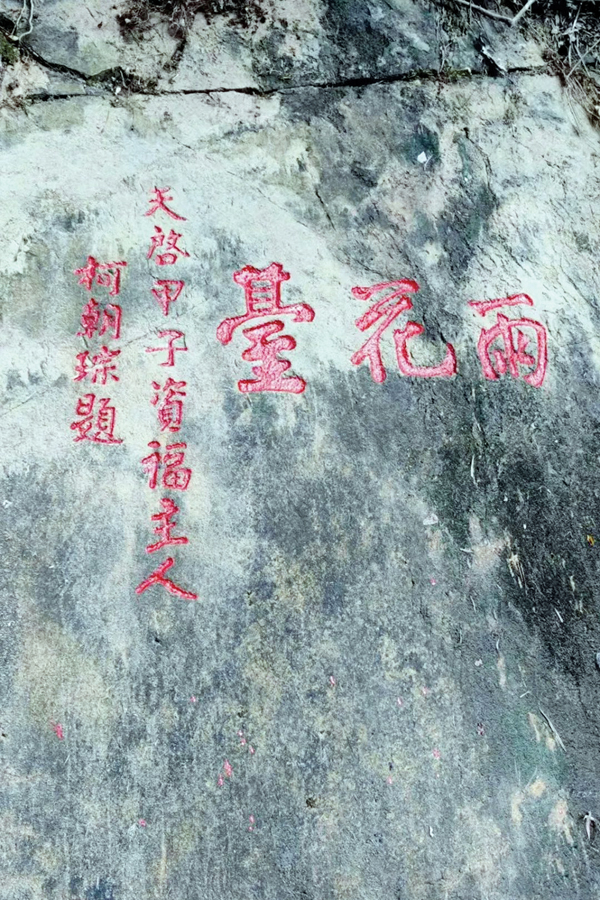 雨花臺
天啓甲子資福主人
柯朝琮題